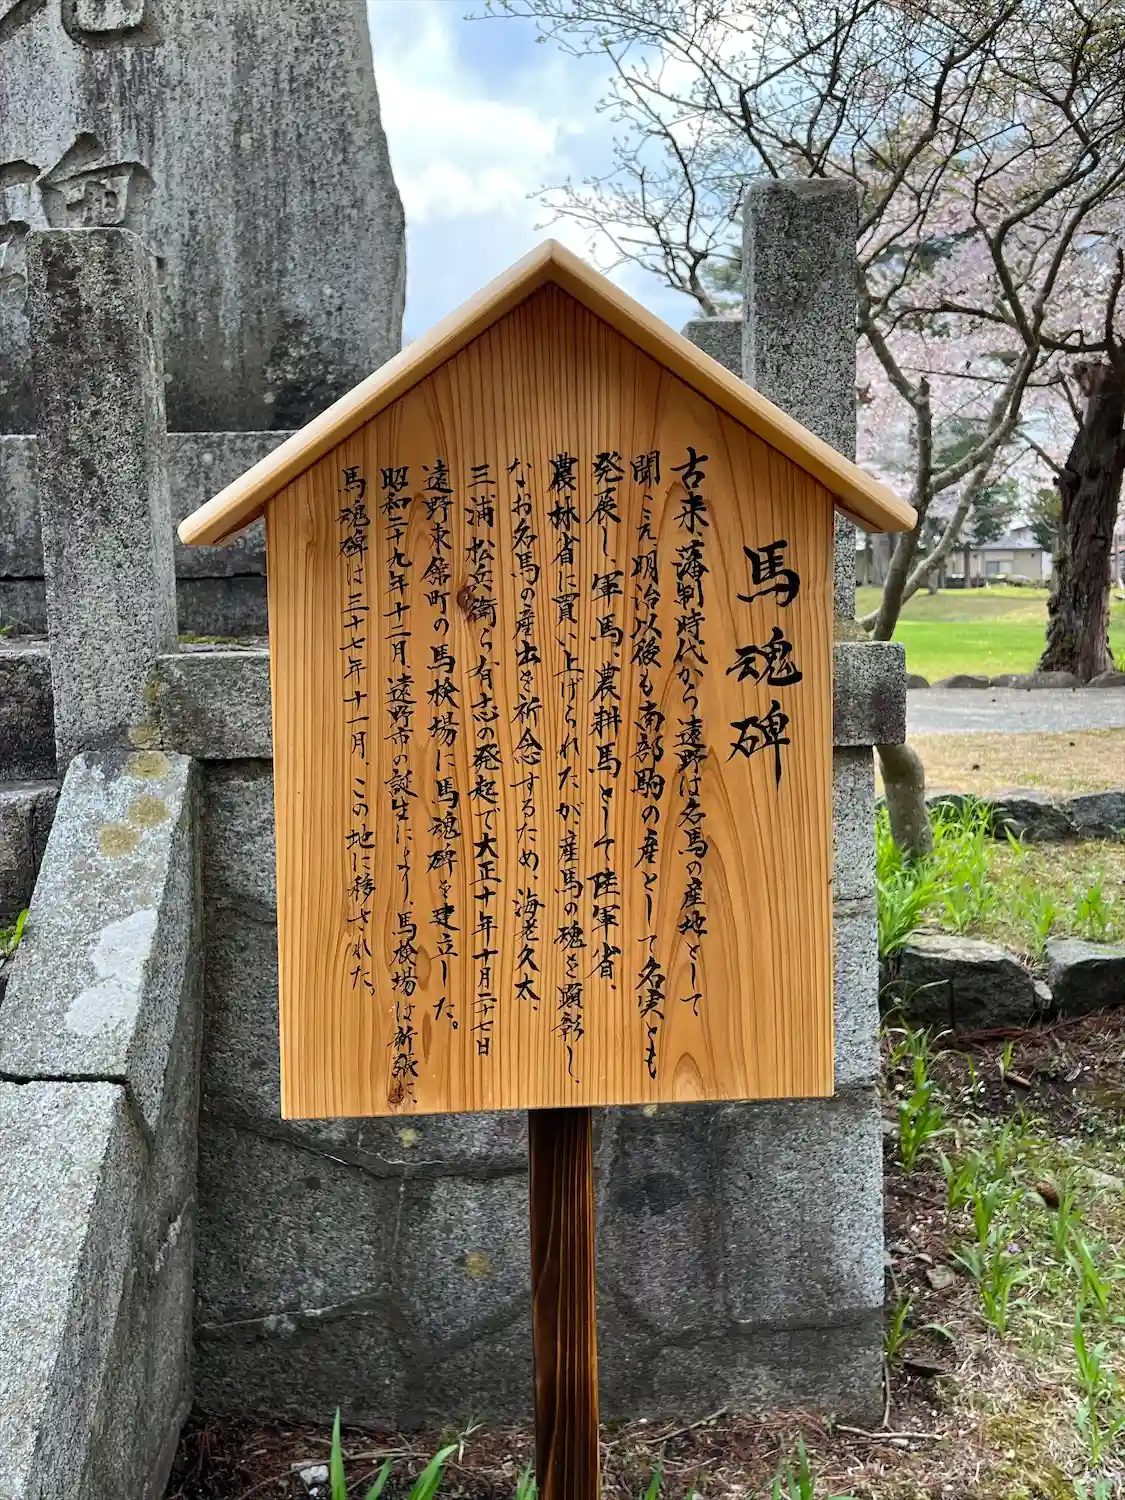 馬魂碑
古来、藩制時代から遠野は名馬の産地として
聞こえ明治以後も南部駒の産として名実とも
発展し、軍馬、農耕馬として陸軍省、
農林省に買い上げられたが産馬の魂を顕彰し、
なお名馬の産出を祈念するため、海老久太、
三浦松兵衛ら有志の発起で大正十年十月二十七日
遠野東舘町の馬検場に馬魂碑を建立した。
昭和二十九年十二月、遠野市の誕生により、馬検場は新張に、
馬魂碑は三十七年十一月、この地に移された。